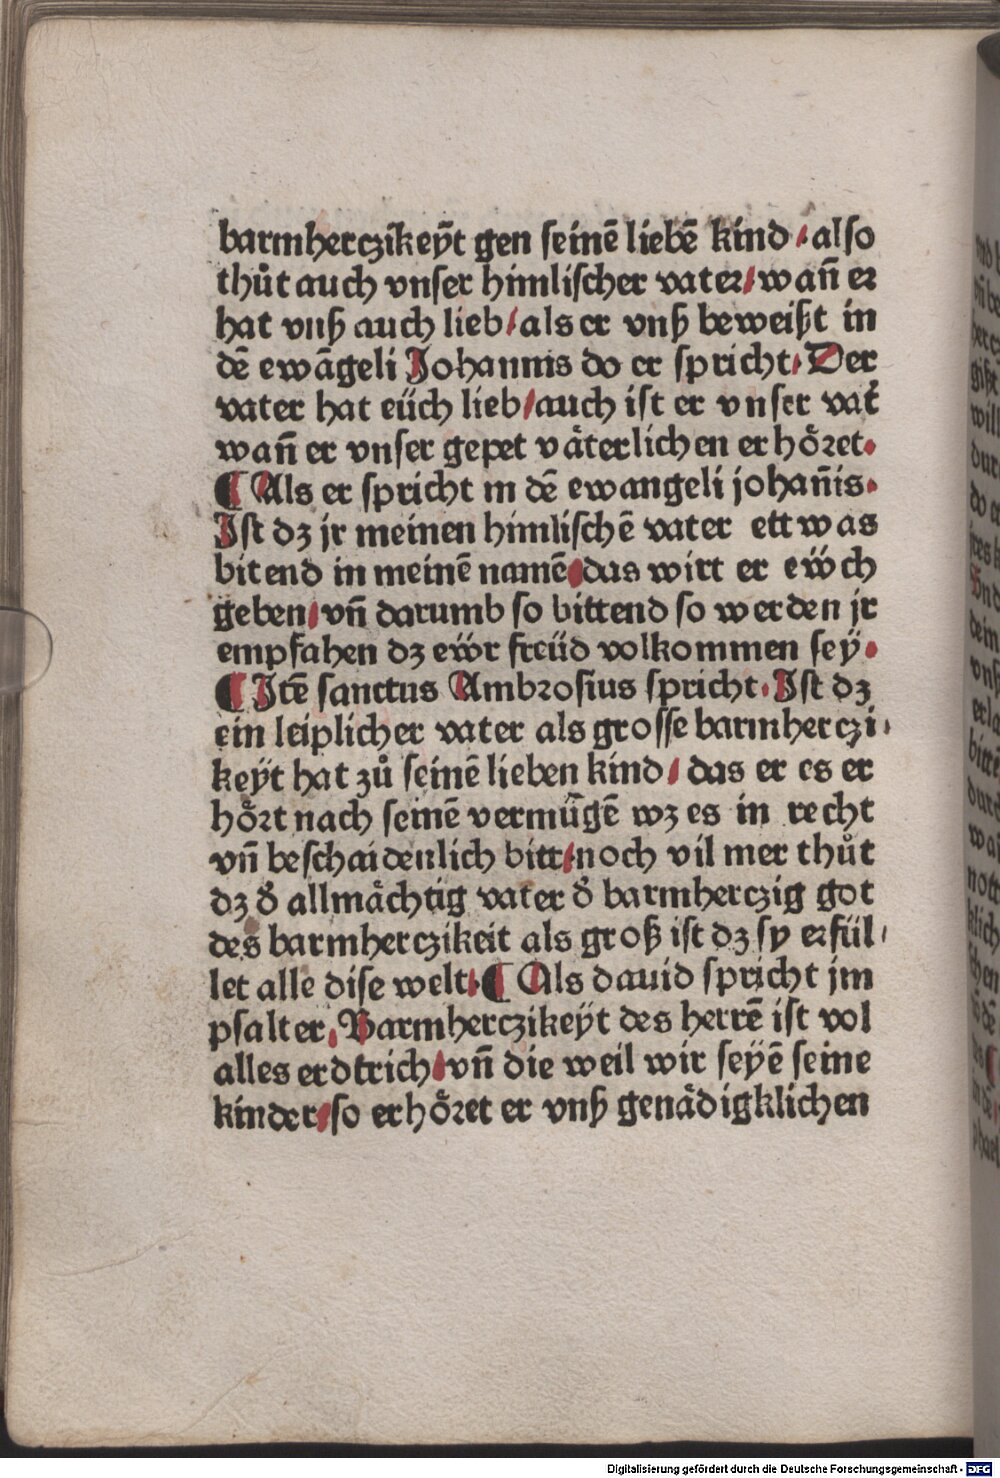 barmherczikeÿt gen seinē liebē kind / also
thůt auch vnser himlischer vater / wañ er
hat vnß auch lieb / als er vnß beweißt in
dē ewãgeli Johannis do er spricht / Der
vater hat eüch lieb / auch ist er vnser vať
wañ er vnser gepet väterlichen erhöꝛet.
¶ Als er spricht in dē ewangeli johañis.
Ist dz jr meinen himlischē vater ettwas
bitend in meinē namē / das wirt er ew̎ch
geben / vñ darumb so bittend so werden jr
empfahen dz ew̎r freüd volkommen seÿ.
¶ Itē sanctus Ambꝛosius spricht. Ist dz
ein leiplicher vater als grosse barmherczi-
keÿt hat zů seinē lieben kind / das er es er
höꝛt nach seinē vermügē wz es in recht
vñ beschaidenlich bitt / noch vil mer thůt
dz ð allmächtig vater ð barmherczig got
des barmherczikeit als groß ist dz sy eꝛfül-
let alle dise welt. ¶ Als dauid spricht jm
psalter. Barmherczikeÿt des herrē ist vol
alles erdtrich / vñ die weil wir seÿē seine
kinder / so erhöꝛet er vnß genädigklichen
Digitalisierung gefördert durch die Deutsche Forschungsgemeinschaft - DFG